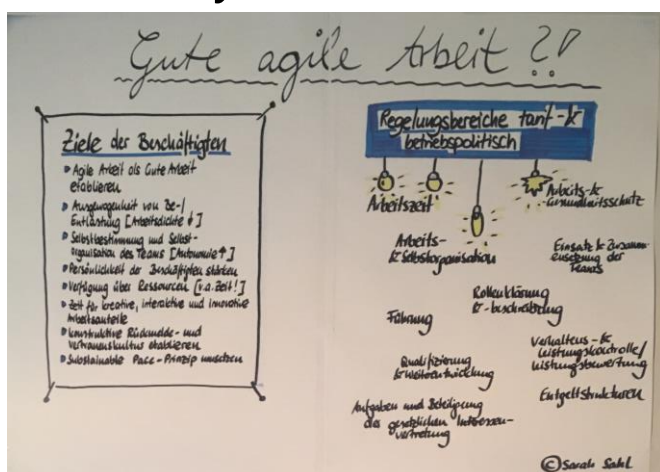 Gute agile Arbeit?!
Ziele der Beschäftigten
Agile Arbeit als Gute Arbeit
etablieren
Ausgewogenheit von Be-/
Entlastung [Arbeitsdichte ↓]
Selbstbestimmung und Selbst-
organisation des Teams [Autonomie ↑]
Persönlichkeit der Beschäftigten stärken
Verfügung über Ressourcen [v.a. Zeit!]
Zeit für kreative, interaktive und innovative
Arbeitsanteile
konstruktive Rückmelde- und
Vertrauenskultur etablieren
Sustainable Pace-Prinzip umsetzen
Regelungsbereiche tarif- &
betriebspolitisch
Arbeitszeit
Arbeits-
& Selbstorganisation
Arbeits- &
Gesundheitsschutz
Einsatz & Zusamm-
ensetzung der
Teams
Rollenklärung
& -beschreibung
Führung
Verhaltens- &
Leistungskontrolle/
Leistungsbewertung
Qualifizierung
& Weiterentwicklung
Entgeltstrukturen
Aufgaben und Beteiligung
der gesetzlichen Interessen-
vertretung
©Sarah